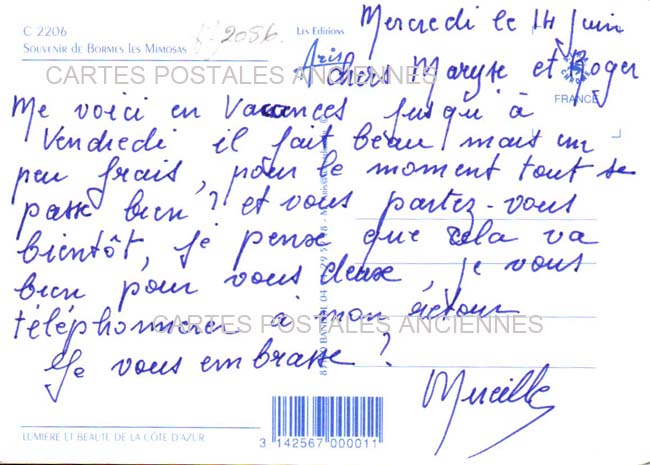 C 2206
SOUVENIR DE BORMES LES MIMOSAS
2056.
Les Editions
Aris
Mercredi le 14 juin
chers Maryse et Roger
CARTES POSTALES ANCIENNES
FRANCE
Me voici en Vacances jusqu'à
Vendredi il fait beau mais un
peu frais, pour le moment tout se
passe bien? et vous partez-vous
bientôt, je pense que cela va
bien pour vous deux, je vous
téléphonnerer à mon retour
CARTES POSTALES ANCIENNES
Je vous embrasse?
Mireille
LUMIERE ET BEAUTE DE LA CÔTE D'AZUR
3 142567 000011